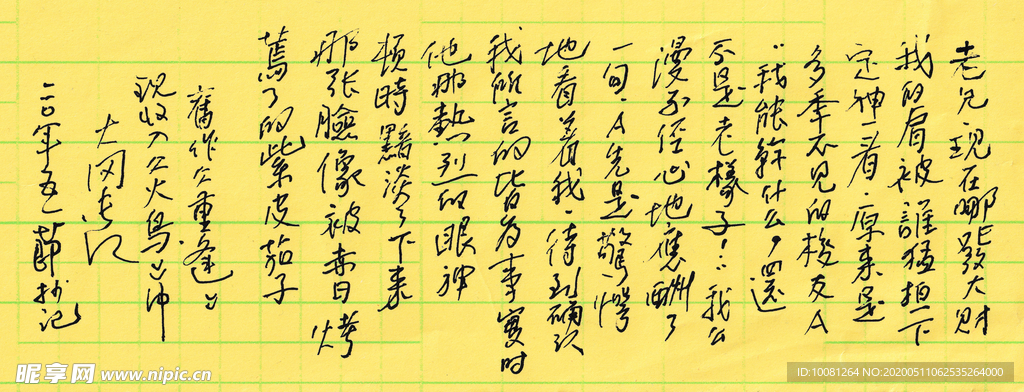 老兄，现在哪里發大财
我的肩被誰猛拍一下
定神看，原来是
多季不见的校友A
“我能幹什么，还
不是老樣子！”我么
漫不经心地應酬了
一句，A先是驚愕
地看着我，待到确认
我所言的皆为事实时
他那熱烈的眼神
頓時黯淡了下来
那张臉像被烈日烤
蔫了的紫皮茄子
舊作《重逢》
现收入《火鳥》中
大冈
二〇年五一節抄记
昵享网 www.nipic.cn
ID:10081264 NO:20200511062535264000